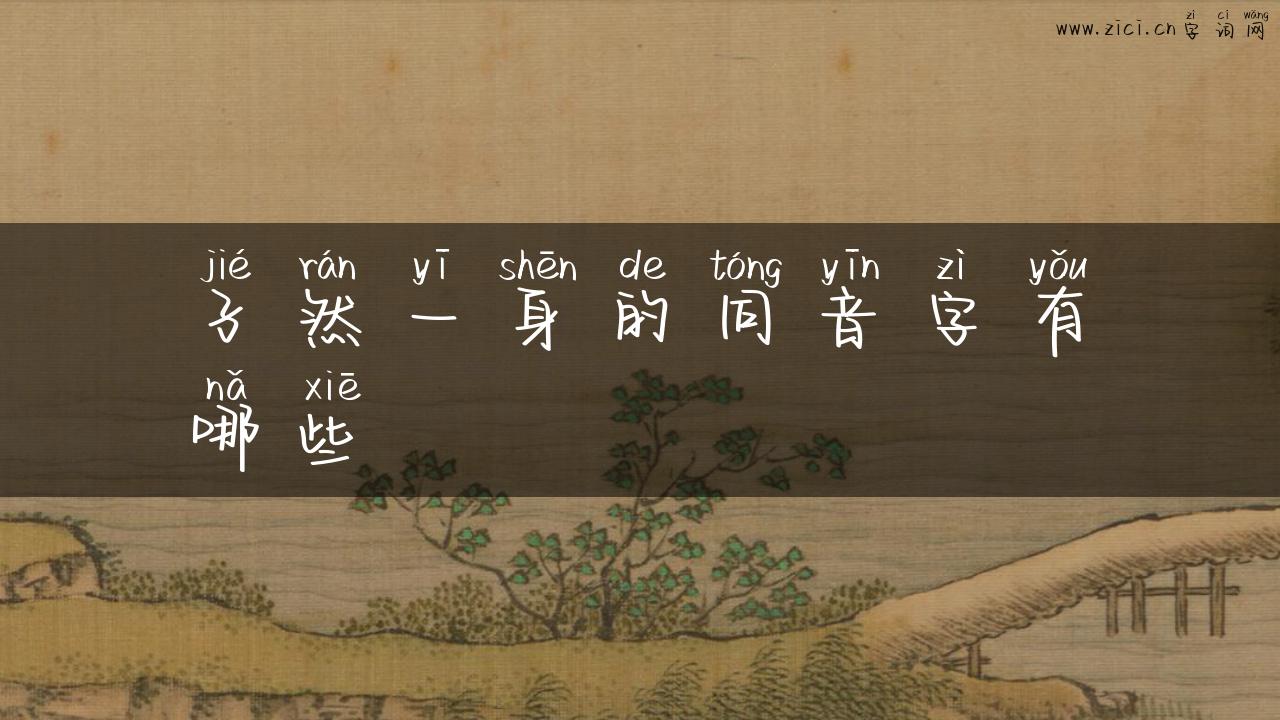 zì cí wǎng
www.zici.cn 字词网
jié rán yī shēn de tóng yīn zì yǒu
孑然一身的同音字有
nǎ xiē
哪些